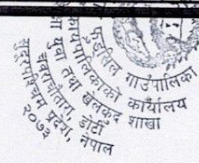 गाउँपालिका
कार्यपालिकाको कार्यालय
युवा तथा खेलकद शाखा
डोटी
सुदूरपश्चिम प्रदेश, नेपाल
२०७३